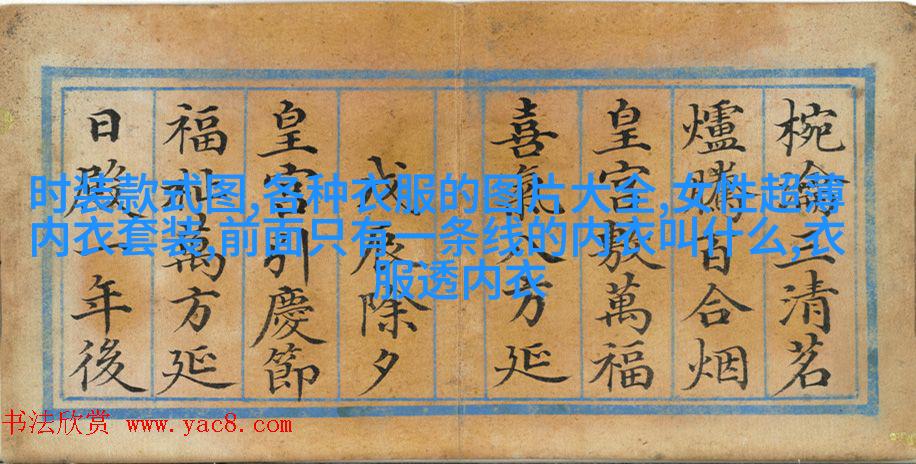 椀三清茗
爐騰百合烟
皇宮敷萬福
喜氣八方延
戊辰除夕
皇宮引慶節
福祉萬方延
日一年後
时装款式图,各种衣服的图片大全,女性超薄
内衣套装,前面只有一条线的内衣叫什么,衣
服透内衣
书法欣赏 www.yac8.com